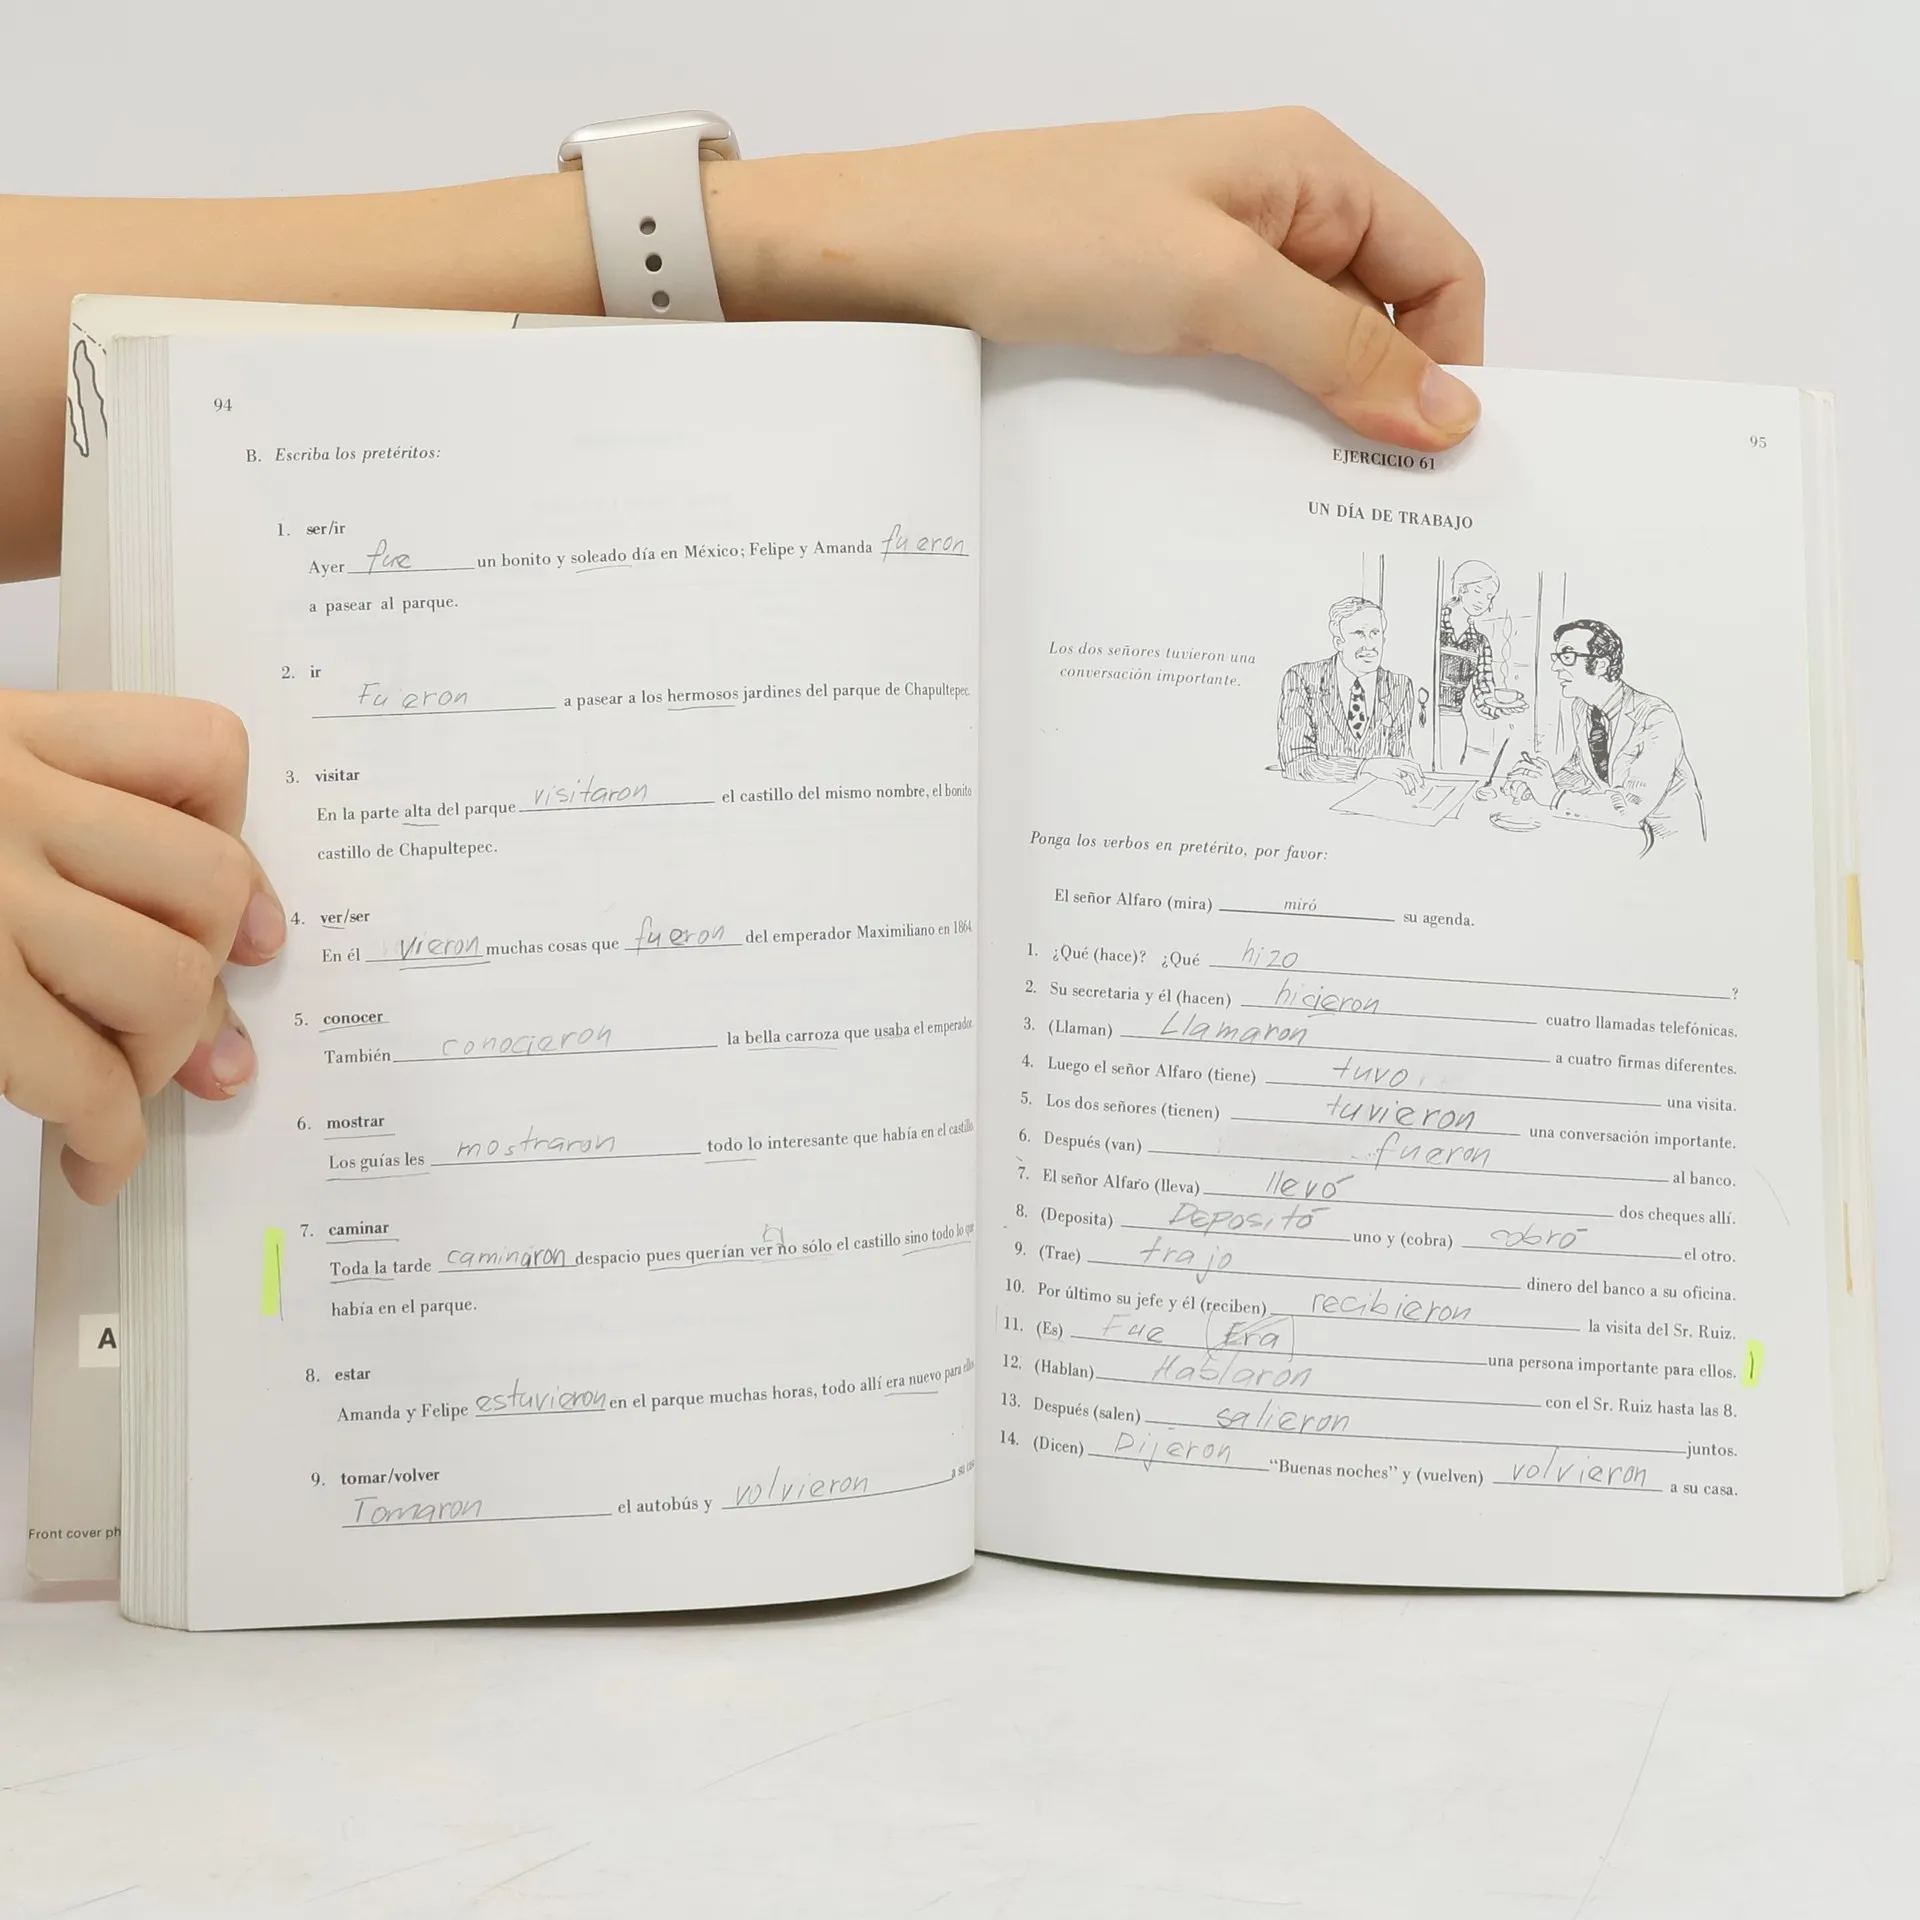 94
B. Escriba los pretéritos:
1. ser/ir
Ayer fue un bonito y soleado día en México; Felipe y Amanda fueron
a pasear al parque.
2. ir
Fueron a pasear a los hermosos jardines del parque de Chapultepec.
3. visitar
En la parte alta del parque visitaron el castillo del mismo nombre, el bonito
castillo de Chapultepec.
4. ver/ser
En él vieron muchas cosas que fueron del emperador Maximiliano en 1864.
5. conocer
También conocieron la bella carroza que usaba el emperador.
6. mostrar
Los guías les mostraron todo lo interesante que había en el castillo.
7. caminar
Toda la tarde caminaron despacio pues querían ver no sólo el castillo sino todo lo que
había en el parque.
8. estar
Amanda y Felipe estuvieron en el parque muchas horas, todo allí era nuevo para ellos
9. tomar/volver
Tomaron el autobús y volvieron a su
A
Front cover ph
95
EJERCICIO 61
UN DÍA DE TRABAJO
Los dos señores tuvieron una
conversación importante.
Ponga los verbos en pretérito, por favor:
El señor Alfaro (mira) miró su agenda.
1. ¿Qué (hace)? ¿Qué hizo ?
2. Su secretaria y él (hacen) hicieron cuatro llamadas telefónicas.
3. (Llaman) Llamaron a cuatro firmas diferentes.
4. Luego el señor Alfaro (tiene) tuvo una visita.
5. Los dos señores (tienen) tuvieron una conversación importante.
6. Después (van) fueron al banco.
7. El señor Alfaro (lleva) llevó dos cheques allí.
8. (Deposita) Depositó uno y (cobra) cobró el otro.
9. (Trae) trajo dinero del banco a su oficina.
10. Por último su jefe y él (reciben) recibieron la visita del Sr. Ruiz.
11. (Es) Fue Era una persona importante para ellos.
12. (Hablan) Hablaron con el Sr. Ruiz hasta las 8.
13. Después (salen) salieron juntos.
14. (Dicen) Dijeron “Buenas noches” y (vuelven) volvieron a su casa.